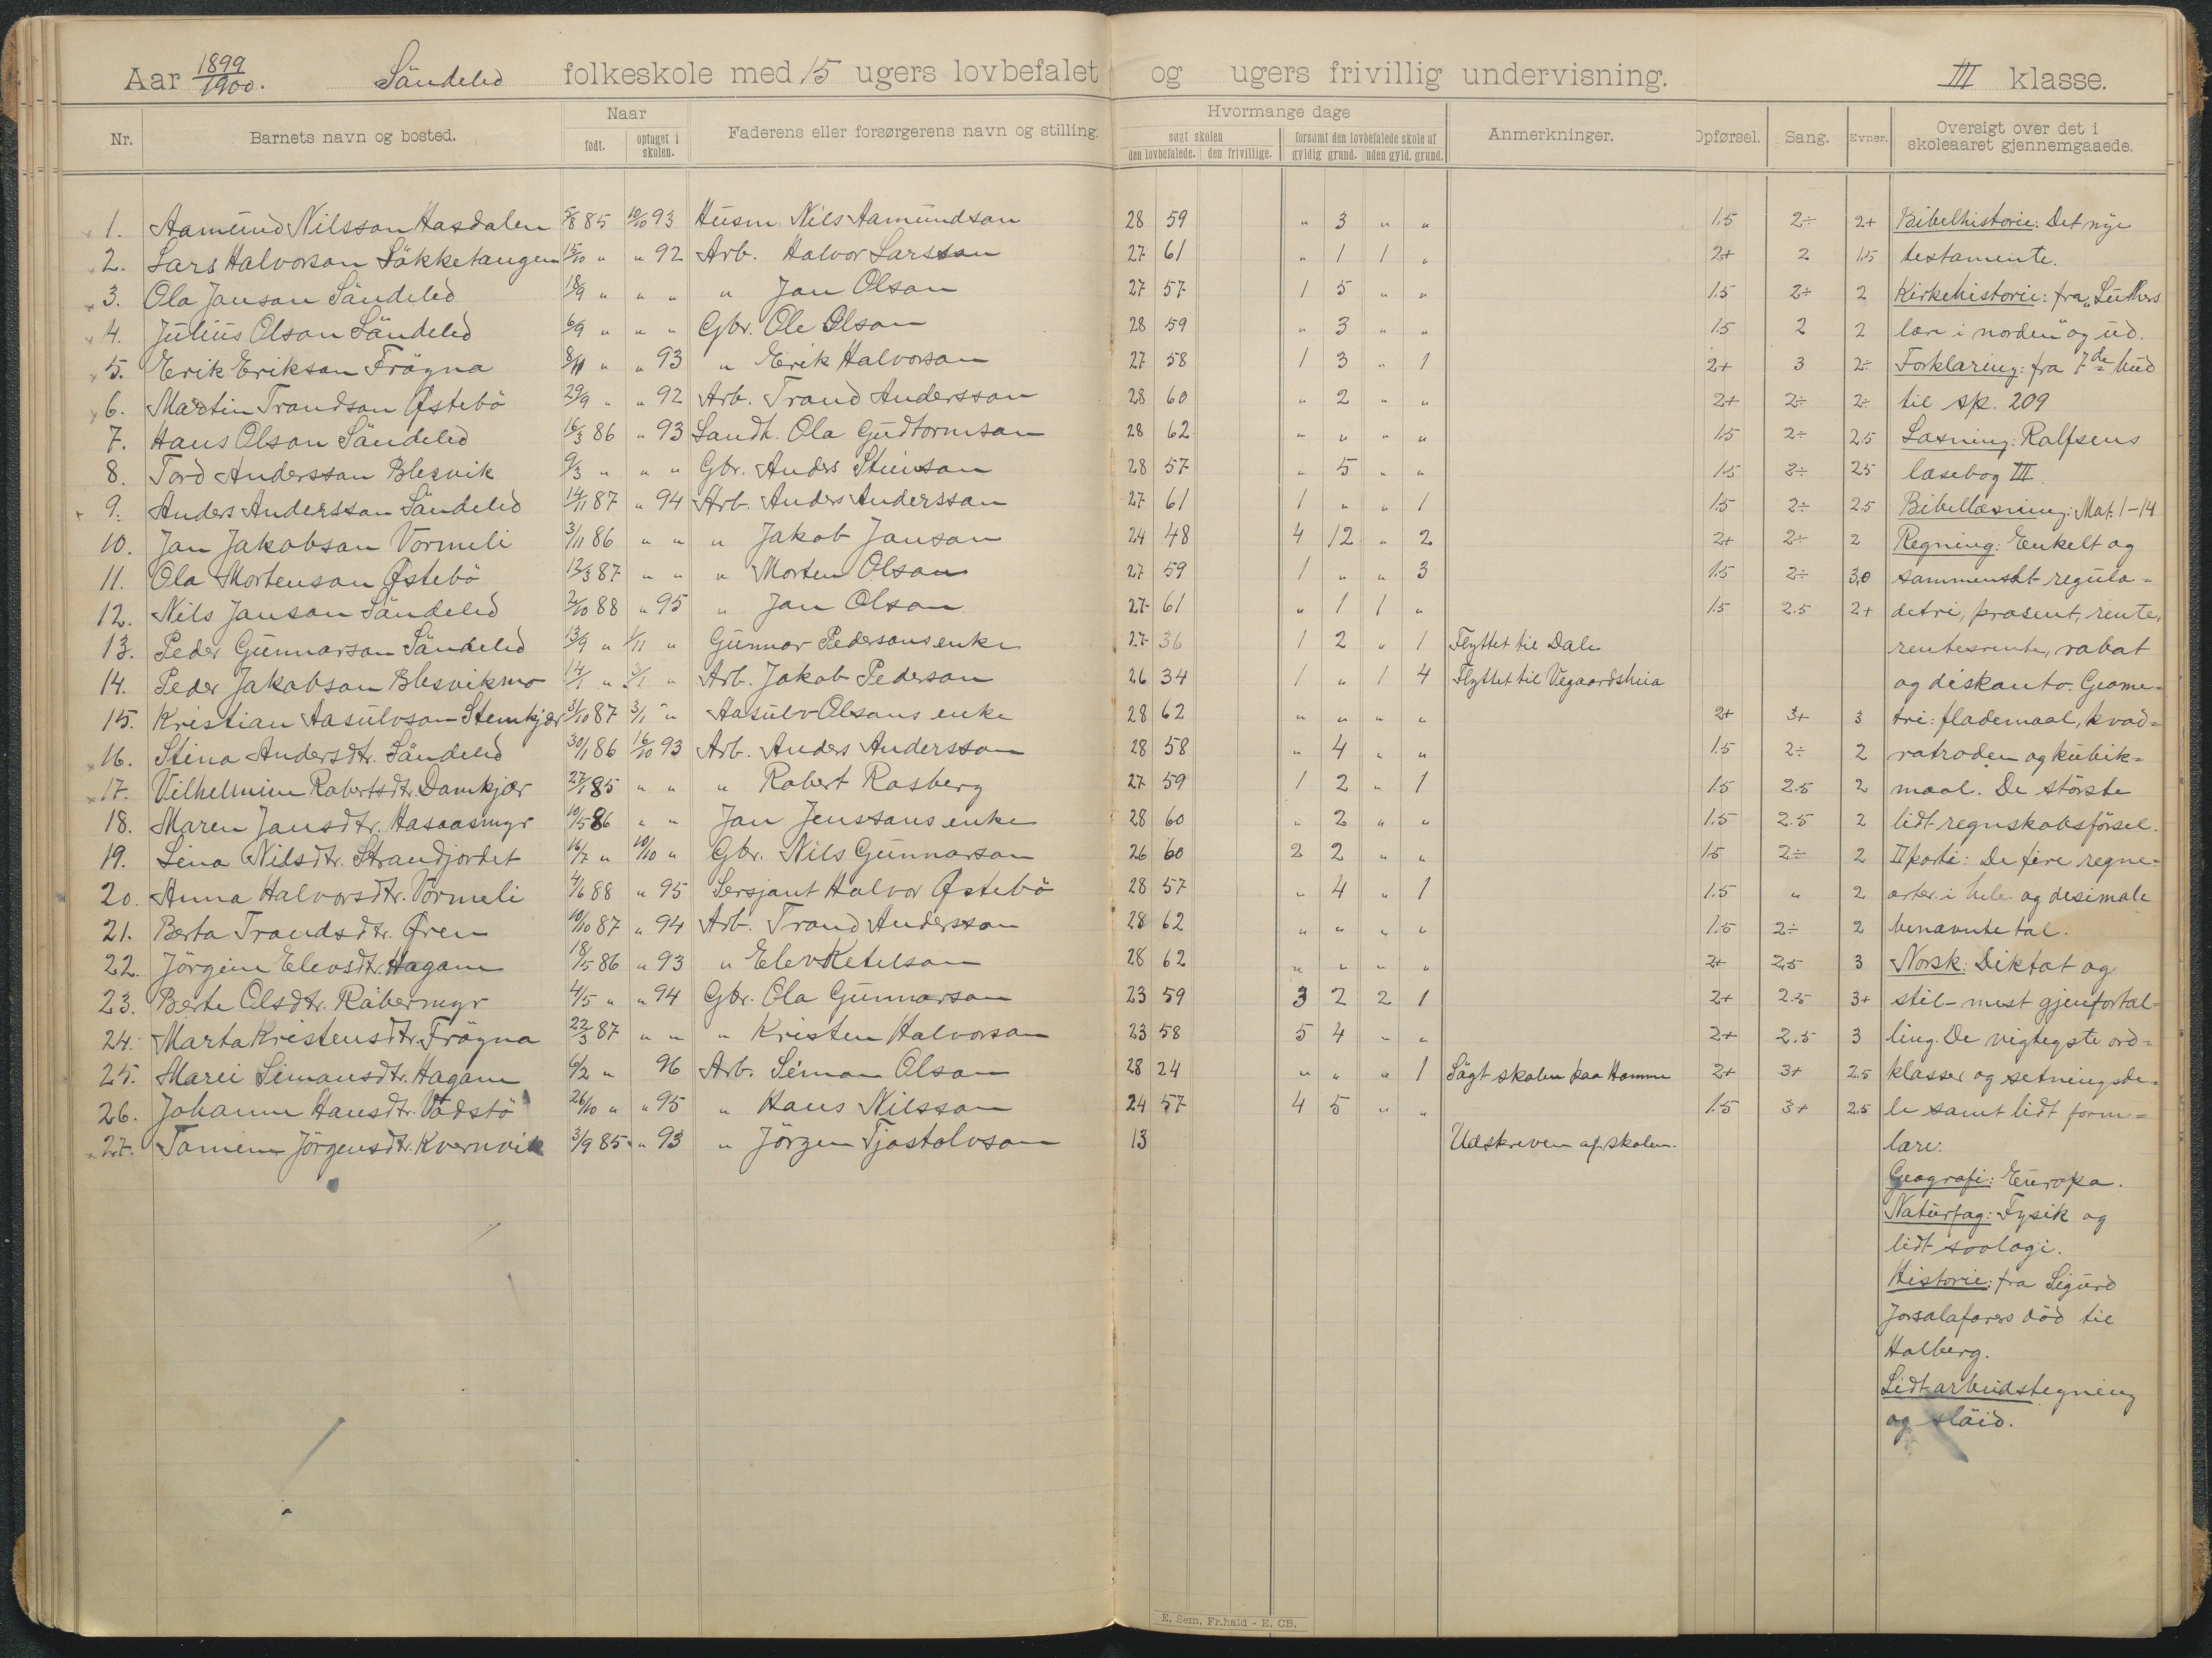 Aar 1899/1900. Söndeled folkeskole med 15 ugers lovbefalet og ugers frivillig undervisning. III klasse.
Nr. Barnets navn og bosted. Naar født. optaget i skolen. Faderens eller forsørgerens navn og stilling. Hvormange dage søgt skolen den lovbefalede. den frivillige. forsømt den lovbefalede skole af gyldig grund. uden gyld. grund. Anmerkninger. Opførsel. Sang. Evner. Oversigt over det i skoleaaret gjennemgaaede.
1. Aamund Nilsson Hasdalen 5/8 85 10/10 93 Husm. Nils Aamundson 28 59 " 3 " " 1.5 2÷ 2+ Bibelhistorie: Det nye
2. Lars Halvorson Lökketangen 15/10 " " 92 Arb. Halvor Larsson 27 61 " 1 1 " 2+ 2 1.5 testamente.
3. Ola Janson Söndeled 18/9 " " " " Jan Olson 27 57 1 5 " " 1.5 2÷ 2 Kirkehistorie: fra „Luthers
4. Julius Olson Söndeled 6/9 " " " Gbr. Ole Olson 28 59 " 3 " " 1.5 2 2 lære i norden" og ud.
5. Erik Erikson Frögna 8/11 " " 93 " Erik Halvorson 27 58 1 3 " 1 2+ 3 2÷ Forklaring: fra 7de bud
6. Martin Trondson Østebö 29/9 " " 92 Arb. Trond Andersson 28 60 " 2 " " 2+ 2÷ 2÷ til sp. 209
7. Hans Olson Söndeled 16/3 86 " 93 Landh. Ola Gudtormson 28 62 " " " " 1.5 2÷ 2.5 Læsning: Rolfsens
8. Tord Andersson Blesvik 9/3 " " " Gbr. Anders Steinson 28 57 " 5 " " 1.5 2÷ 2.5 læsebog III.
9. Anders Andersson Söndeled 14/11 87 " 94 Arb. Anders Andersson 27 61 1 " " 1 1.5 2÷ 2.5 Bibellæsning: Mat. 1-14
10. Jan Jakobson Vormeli 3/11 86 " " " Jakob Janson 24 48 4 12 " 2 2+ 2÷ 2 Regning: Enkelt og
11. Ola Mortenson Østebö 12/3 87 " " " Morten Olson 27 59 1 " " 3 1.5 2÷ 3,0 sammensat regula=
12. Nils Janson Söndeled 2/10 88 " 95 " Jan Olson 27 61 " 1 1 " 1.5 2.5 2+ detri, prosent, rente,
13. Peder Gunnarson Söndeled 13/9 " 1/11 " Gunnar Pedersons enke 27 36 1 2 " 1 Flyttet til Dale rentesrente, rabat
14. Peder Jakobson Blesvikmo 14/1 " 3/1 " Arb. Jakob Pederson 26 34 1 " 1 4 Flyttet til Vegaardsheia og diskonto. Geome=
15. Kristian Aasulvson Stemkjær 31/10 87 3/1 " Aasulv Olsons enke 28 62 " " " " 2+ 3+ 3 tri: flademaal, kvad=
16. Stina Andersdtr. Söndeled 30/1 86 16/10 93 Arb. Anders Andersson 28 58 " 4 " " 1.5 2÷ 2 ratroden og kubik=
17. Vilhelmine Robertsdtr. Damkjær 27/1 85 " " " Robert Rosberg 27 59 1 2 " 1 1.5 2.5 2 maal. De störste
18. Maren Jansdtr. Hasaasmyr 10/5 86 " " Jan Jenssons enke 28 60 " 2 " " 1.5 2.5 2 lidt regnskabsförsel.
19. Lina Nilsdtr. Strandjordet 16/7 " 10/10 " Gbr. Nils Gunnarson 26 60 2 2 " " 1.5 2÷ 2 II parti: De fire regne=
20. Anna Halvorsdtr. Vormeli 4/6 88 " 95 Sersjant Halvor Østebö 28 57 " 4 " 1 1.5 " 2 arter i hele og desimale
21. Berta Trondsdtr. Øren 10/10 87 " 94 Arb. Trond Andersson 28 62 " " " " 1.5 2÷ 2 benævnte tal.
22. Jörgine Elevsdtr. Hagane 18/5 86 " 93 " Elev Ketilson 28 62 " " " " 2+ 2,5 3 Norsk: Diktat og
23. Berte Olsdtr. Röbermyr 4/5 " " 94 Gbr. Ola Gunnarson 23 59 3 2 2 1 2+ 2.5 3+ stil - mest gjenfortæl=
24. Marta Kristensdtr. Frögna 22/3 87 " " " Kristen Halvorson 23 58 5 4 " " 2+ 2.5 3 ling. De vigtegste ord=
25. Marei Simonsdtr. Hagane 6/2 " 96 Arb. Simon Olson 28 24 " " " 1 Sögt skolen paa Homme 2+ 3+ 2.5 klasser og setningsde=
26. Johanne Hansdtr. Vadstö 26/10 " " 95 " Hans Nilsson 24 57 4 5 " " 1.5 3+ 2.5 le samt lidt form=
27. Tomine Jörgensdtr. Kvernvik 3/9 85 " 93 " Jörgen Tjostolvson 13 Udskreven af skolen. lære.
Geografi: Europa.
Naturfag: Fysik og
lidt soologi.
Historie: fra Sigurd
Jorsalafarers död til
Holberg.
Lidt arbeidstegning
og slöid.
E. Sem, Fr.hald - E. CB.